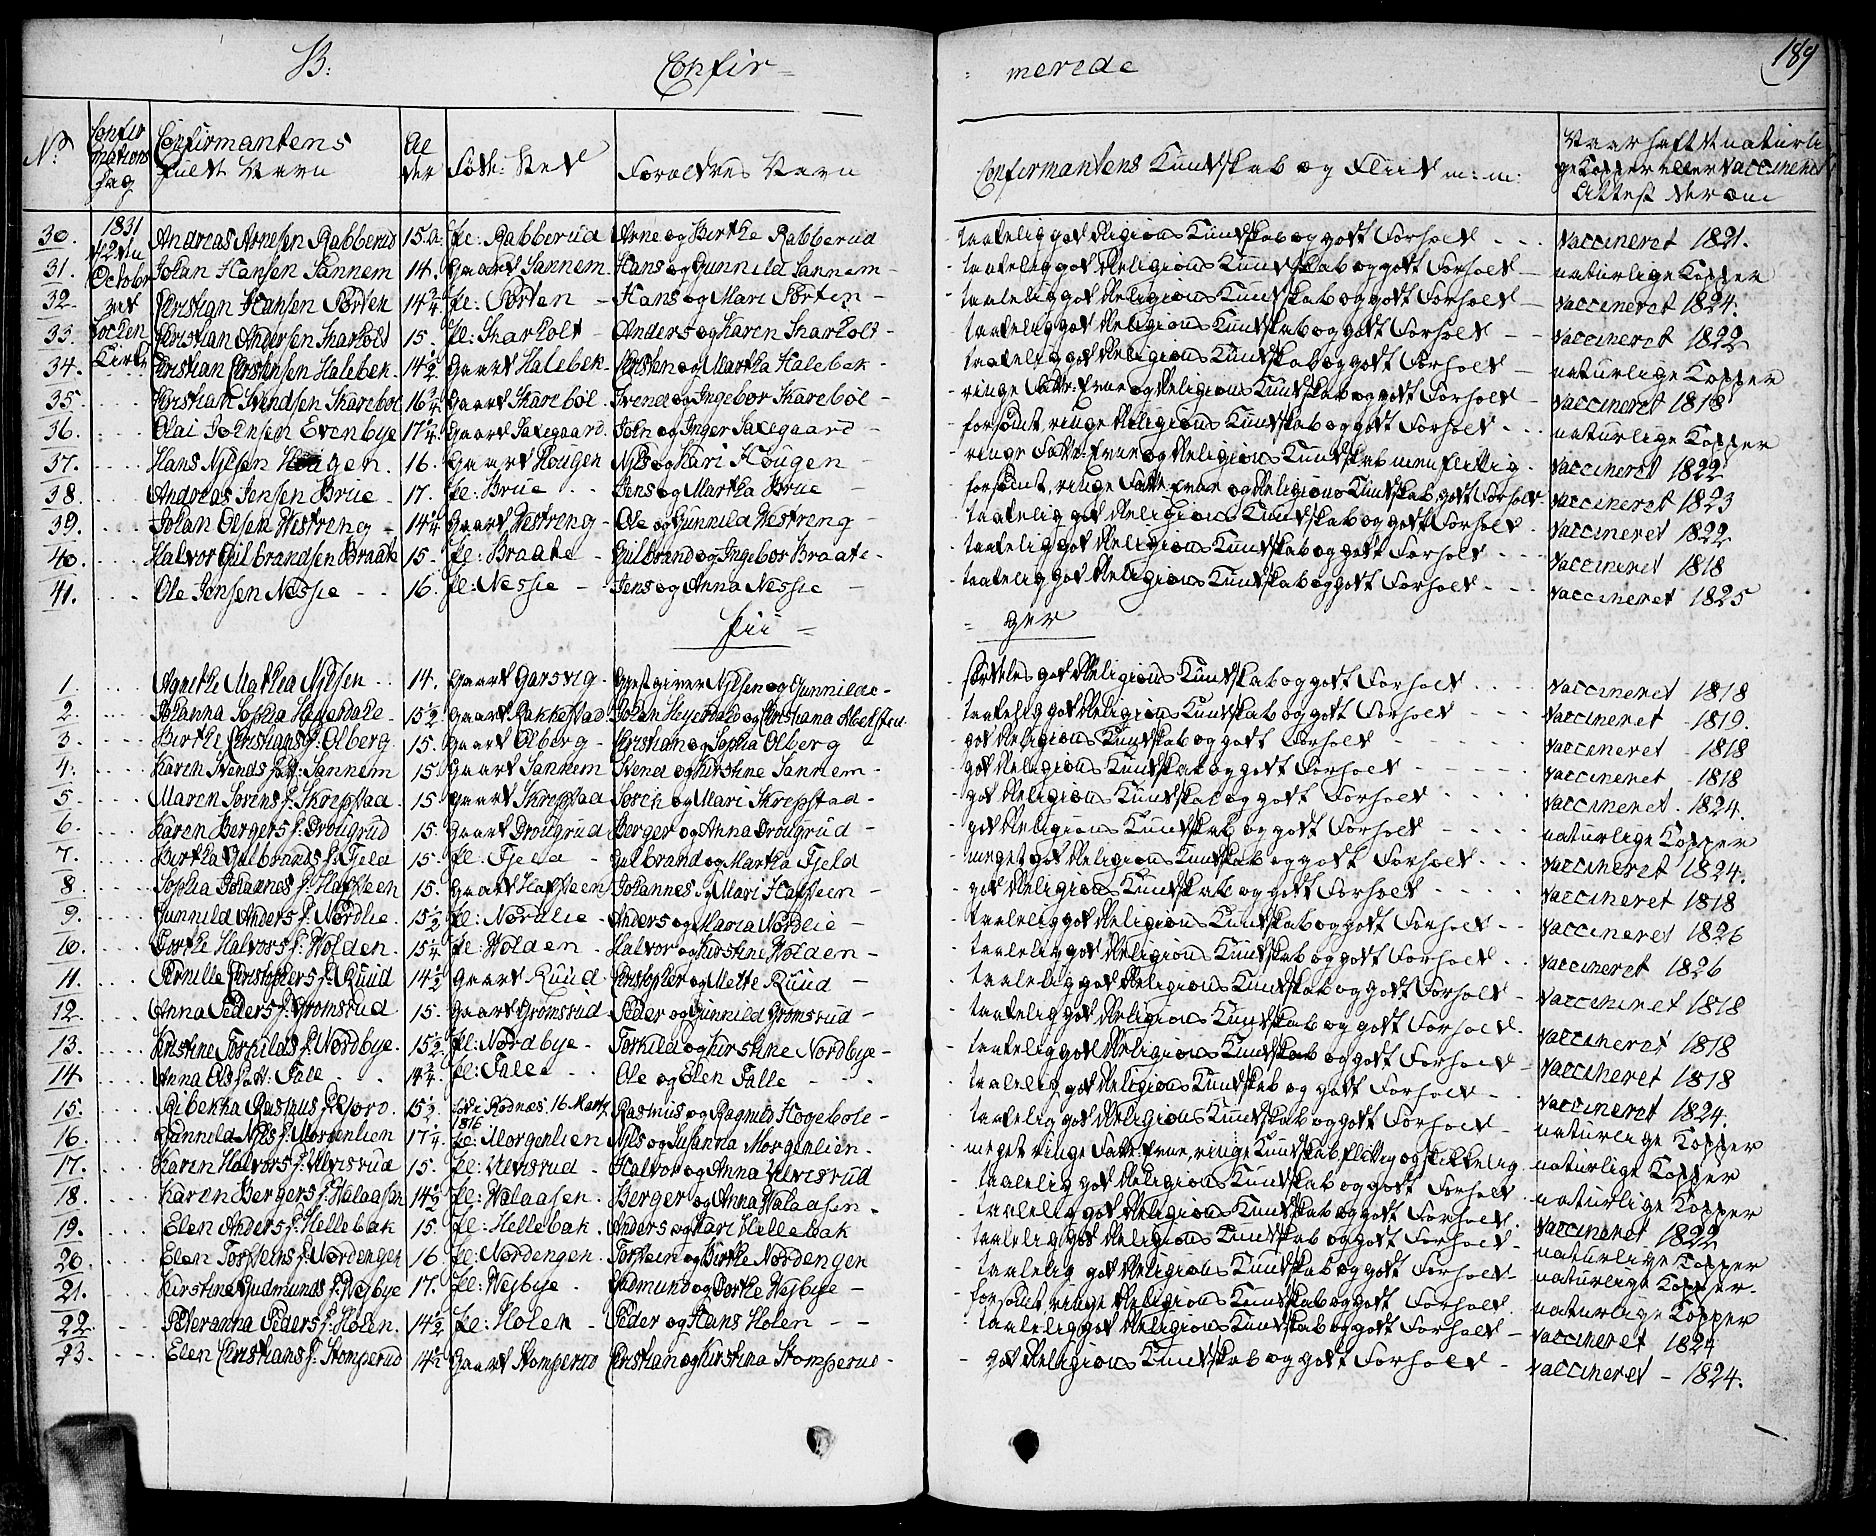 B:
Confir =
= merede
189
No:
Confirmations Dag
Confirmantens fulde Navn
Alder
Føde: Sted
Forældres Navn
Confirmantens Kundskab og Fliid m: m:
Naar haft de naturlige Kopper eller Vaccineret Attest derom
1831 42de October Kirke
30. Andreas Arnesen Rabberud 15. a: pl: Rabberud Arne og Birthe Rabberud - taalelig god Religions Kundskab og godt Forhold - - - Vaccineret 1821.
31. Johan Hansen Sannem 14. Gaard Sannem. Hans og Gunnild Sannem - - taalelig god Religions Kundskab og godt Forhold - naturlige Kopper
32. Christian Hansen Sørten 14 2/4 pl: Sørten - Hans og Mari Sørten - - taalelig god Religions Kundskab og godt Forhold - Vaccineret 1824.
33. Christian Andersen Skarholt 15. pl: Skarholt - Anders og Karen Skarholt - taalelig god Religions Kundskab og godt Forhold - - Vaccineret 1822
34. Christian Christensen Halebek 14 1/2 Gaard Halebek - Christen og Martha Halebek - - taalelig god Religions Kundskab og godt Forhold - naturlige Kopper
35. Christian Svendsen Skarebøl 16 3/4 Gaard Skarebøl. Svend og Ingebor Skarebøl - - ringe Fatte: Evne og Religions Kundskab og godt Forhold - Vaccineret 1818
36. Olai Johnsen Evenbye 17 2/4 Gaard Saxegaard. John og Inger Saxegaard - - forsømt, ringe Religions Kundskab og godt Forhold - - - naturlige Kopper
37. Hans Nilsen Hougen. 16. Gaard Hougen Nils og Kari Hougen - ringe Fatte: Evne og Religions Kundskab men flittig. Vaccineret 1822
38. Andreas Jensen Brue - 17. pl: Brue - - Jens og Martha Brue - - forsømt, ringe Fatte Evne og Religions Kundskab, godt Forhold Vaccineret 1823
39. Johan Olsen Westreng - 14 1/4 Gaard Westreng - Ole og Gunnild Westreng - - taalelig god Religions Kundskab og godt Forhold. Vaccineret 1822
40. Halvor Gulbrandsen Braate 15. pl: Braate - Gulbrand og Ingebor Braate - - taalelig god Religions Kundskab og godt Forhold - - - Vaccineret 1818
41. Ole Jensen Nessie - - 16. pl: Nessie - Jens og Anna Nessie - - taalelig god Religions Kundskab og godt Forhold - - - Vaccineret 1825
Pii =
= ger
1. Agnethe Mathea Nilsen - - 14. Gaard Garsvig - Giestgiver Nilsen og Gunnilde - - særdeles god Religions Kundskab og godt Forhold - - - - Vaccineret 1818
2. Johanna Sophia 15 1/2 Gaard Rakkestad Johan Heyerdahl og Christiana - taalelig god Religions Kundskab og godt Forhold - - - Vaccineret - 1819.
3. Birthe Christians f: Olberg 15. Gaard Olberg - Christian og Sophia Olberg - god Religions Kundskab og godt Forhold - - - - - Vaccineret - 1818
4. Karen Svends Datt: Sannem 15 Gaard Sannem Svend og Kirstine Sannem - god Religions Kundskab og godt Forhold - - - - Vaccineret - 1818
5. Maren Sørens f: Skrepstad 15 Gaard Skrepstad Søren og Mari Skrepstad - - god Religions Kundskab og godt Forhold - - - - Vaccineret - 1824.
6. Karen Bergers f: Drougrud 15 Gaard Drougrud Berger og Anna Drougrud - - god Religions Kundskab og godt Forhold - - - - naturlige Kopper
7. Birtha Gulbrands f: Fjeld 15. pl: Fjeld - Gulbrand og Martha Fjeld - meget god Religions Kundskab og godt Forhold - - - Vaccineret 1824.
8. Sophia Johannes f: Hafsteen 15. Gaard Hafsteen Johannes og Mari Hafsteen - - god Religions Kundskab og godt Forhold - - - - Vaccineret 1818
9. Gunnild Anders f: Nordlie 15 1/2 pl: Nordlie - Anders og Maria Nordlie - - taalelig god Religions Kundskab og godt Forhold - - Vaccineret 1826
10. Dorthe Halvors f: Wolden 15 1/4 pl: Wolden - Halvor og Kirstine Wolden - - taalelig god Religions Kundskab og godt Forhold - - Vaccineret 1826
11. Pernille Christophers f: Ruud 14 1/2 Gaard Ruud - Christopher og Mette Ruud - - taalelig god Religions Kundskab og godt Forhold - Vaccineret 1818
12. Anna Peders f: Gromsrud 15. Gaard Gromsrud Peder og Gunnild Gromsrud - - taalelig god Religions Kundskab og godt Forhold. Vaccineret 1818
13. Kirstine Torkilds f: Nordbye. 15 1/2 pl: Nordbye - Torkild og Kirstine Nordbye - - taalelig god Religions Kundskab og godt Forhold - Vaccineret 1818
14. Anna Ols Datt: Falle 14 2/4 pl: Falle - - Ole og Elen Falle - - - - taalelig god Religions Kundskab og godt Forhold - - Vaccineret 1824.
15. Ribekka Rasmus f: 15 1/2 Fød i Rødnæs 16 Marts 1816 Rasmus og Ragnild Hogebøle - - taalelig god Religions Kundskab og godt Forhold - naturlige Kopper
16. Gunnild Nils f: Morgenlien 17 1/4 pl: Morgenlien Nils og Susanna Morgenlien. - meget ringe Fatte: Evne, ringe Kundskab flittig og skikkelig. naturlige Kopper
17. Karen Halvors f: Ulvisrud 15. pl: Ulvisrud - Halvor og Anna Ulvisrud - taalelig god Religions Kundskab og godt Forhold - naturlige Kopper
18. Karen Bergers f: Walaasen 14 1/2 pl: Walaasen - Berger og Anna Walaasen. - taalelig god Religions Kundskab og godt Forhold. Vaccineret 1822
19. Elen Anders f: Hellebak 15. pl: Hellebak. Anders og Kari Hellebak - taalelig god Religions Kundskab og godt Forhold - naturlige Kopper
20. Elen Torsteins f: Nordengen 16 pl: Nordengen - Torstein og Birthe Nordengen - taalelig god Religions Kundskab og godt Forhold - naturlige Kopper -
21. Kirstine Gudmunds f: Wesbye 17. pl: Wesbye - Gudmund og Dorthe Wesbye - forsømt, ringe Religions Kundskab og godt Forhold naturlige Kopper
22. - - Peteranna Peders f: Holen. 14 1/2 pl: Holen - Peder og Hans Holen - - - taalelig god Religions Kundskab og godt Forhold - Vaccineret 1824
23. - - - Elen Christians f: Stomperud 14 1/2 Gaard Stomperud Christian og Kirstina Stomperud - - god Religions Kundskab og godt Forhold - Vaccineret - 1824.